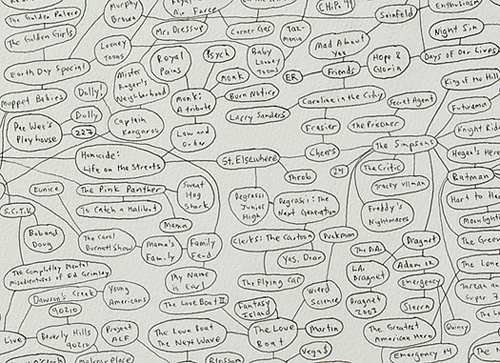 The Golden Palace
Murphy
Brown
Air Force
CHiPs '99
Seinfeld
Enthusiasm
The Golden Girls
Mr. Dressup
Corner Gas
Taz-
mania
Night Sin
Looney
Toons
Royal
Pains
Psych
Baby
Looney
Toons
Mad About
You
Hope &
Gloria
Days of Our Lives
Earth Day Special
Mister
Roger's
Neighborhood
Monk
ER
Friends
King of the Hill
Muppet Babies
Dolly!
Monk:
A tribute
Burn Notice
Caroline in the City
Secret Agent
Futurama
Dolly
Captain
Kangaroo
Larry Sanders
Pee Wee's
Playhouse
227
Low and
Order
Frasier
The Prisoner
Knight Rider
Homicide:
Life on the Streets
St. Elsewhere
Cheers
The Simpsons
Hogan's Heroes
Throb
24
The Critic
Batman
Eunice
The Pink Panther
Sweat
Hog
Shark
Tracey Ullman
Hart to H
Is Catch a Halibut
Degrassi
Junior
High
Degrassi: The
Next Generation
Freddy's
Nightmares
Moonli
S.C.T.V.
Mama
The Green
Bob and
Doug
The Carol
Burnett Show
Mama's
Family
Family
Feud
Clerks: The Cartoon
Duckman
The D.A.
Dragnet
The Lone
Yes, Dear
L.A.
Dragnet
Adam 12
The Completely Mental
Misadventures of Ed Grimley
My Name
is Earl
The Flying Car
Emergency
Tarzan an
Super 7
Dawson's Creek
90210
Young
Americans
The Love Boat II
Fantasy
Island
Weird
Science
Dragnet
2003
Sierra
Live
Beverly Hills
90210
Project
ALF
The Love Boat
The Next Wave
The Love
Boat
Martin
The Greatest
American Hero
Quincy
Melrose Place
Blossom
Vega$
Emergency +4